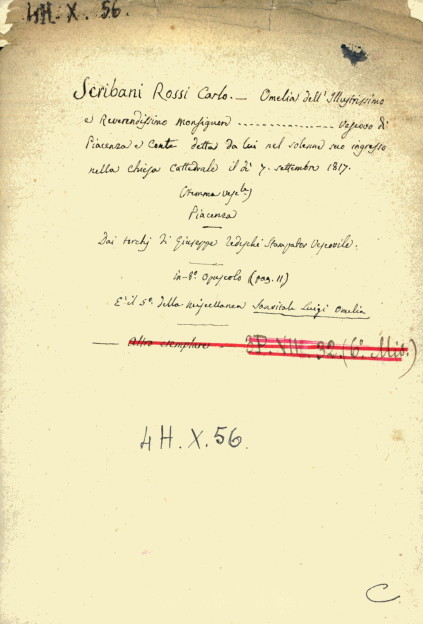 4H. X. 56.
Scribani Rossi Carlo. — Omelia dell' Illustrissimo
e Reverendissimo Monsignore ---------------- Vescovo di
Piacenza e Conte detta da lui nel solenne suo ingresso
nella Chiesa Cattedrale il dì 7. settembre 1817.
(stemma vesc.le)
Piacenza
Dai torchj di Giuseppe Tedeschi Stampator Vescovile.
in-8º opuscolo (pag. 11)
E' il 5º della miscellanea Sanvitale Luigi Omelia
— Altro esemplare - 3P. VII. 32. (6º. Mil.)
4 H. X. 56.
C.